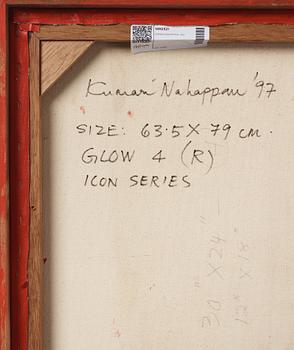 Kumari Nahappan '97
SIZE: 63.5 X 79 cm.
GLOW 4 (R)
ICON SERIES
30" X 24"
12" X 18"